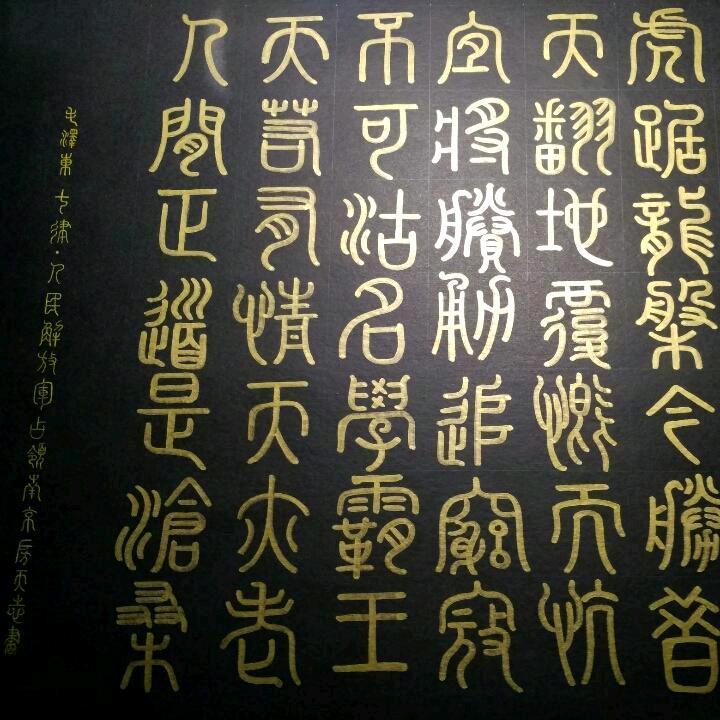 虎踞龍槃今勝昔
天翻地覆慨而忼
宜將賸勇追窮寇
不可沽名學霸王
天若有情天亦老
人間正道是滄桑
毛澤東七律·人民解放軍占領南京房天志書